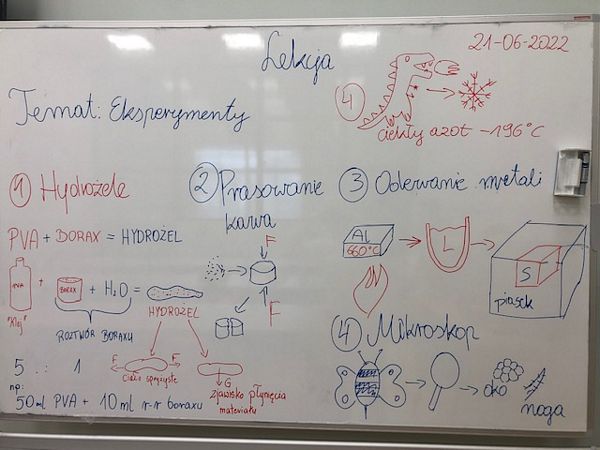 Lekcja
21-06-2022
Temat: Eksperymenty
4
ciekły azot -196°C
1 Hydrożele
PVA + BORAX = HYDROŻEL
PVA
"klej"
+
BORAX
+ H₂O =
HYDROŻEL
ROZTWÓR BORAXU
5 : 1
np:
50ml PVA + 10ml r-r boraxu
F
F
ciało sprężyste
G
zjawisko płynięcia
materiału
2 Prasowanie
kawa
F
F
3 Odlewanie metali
Al
660°C
L
S
piasek
4 Mikroskop
oko
noga